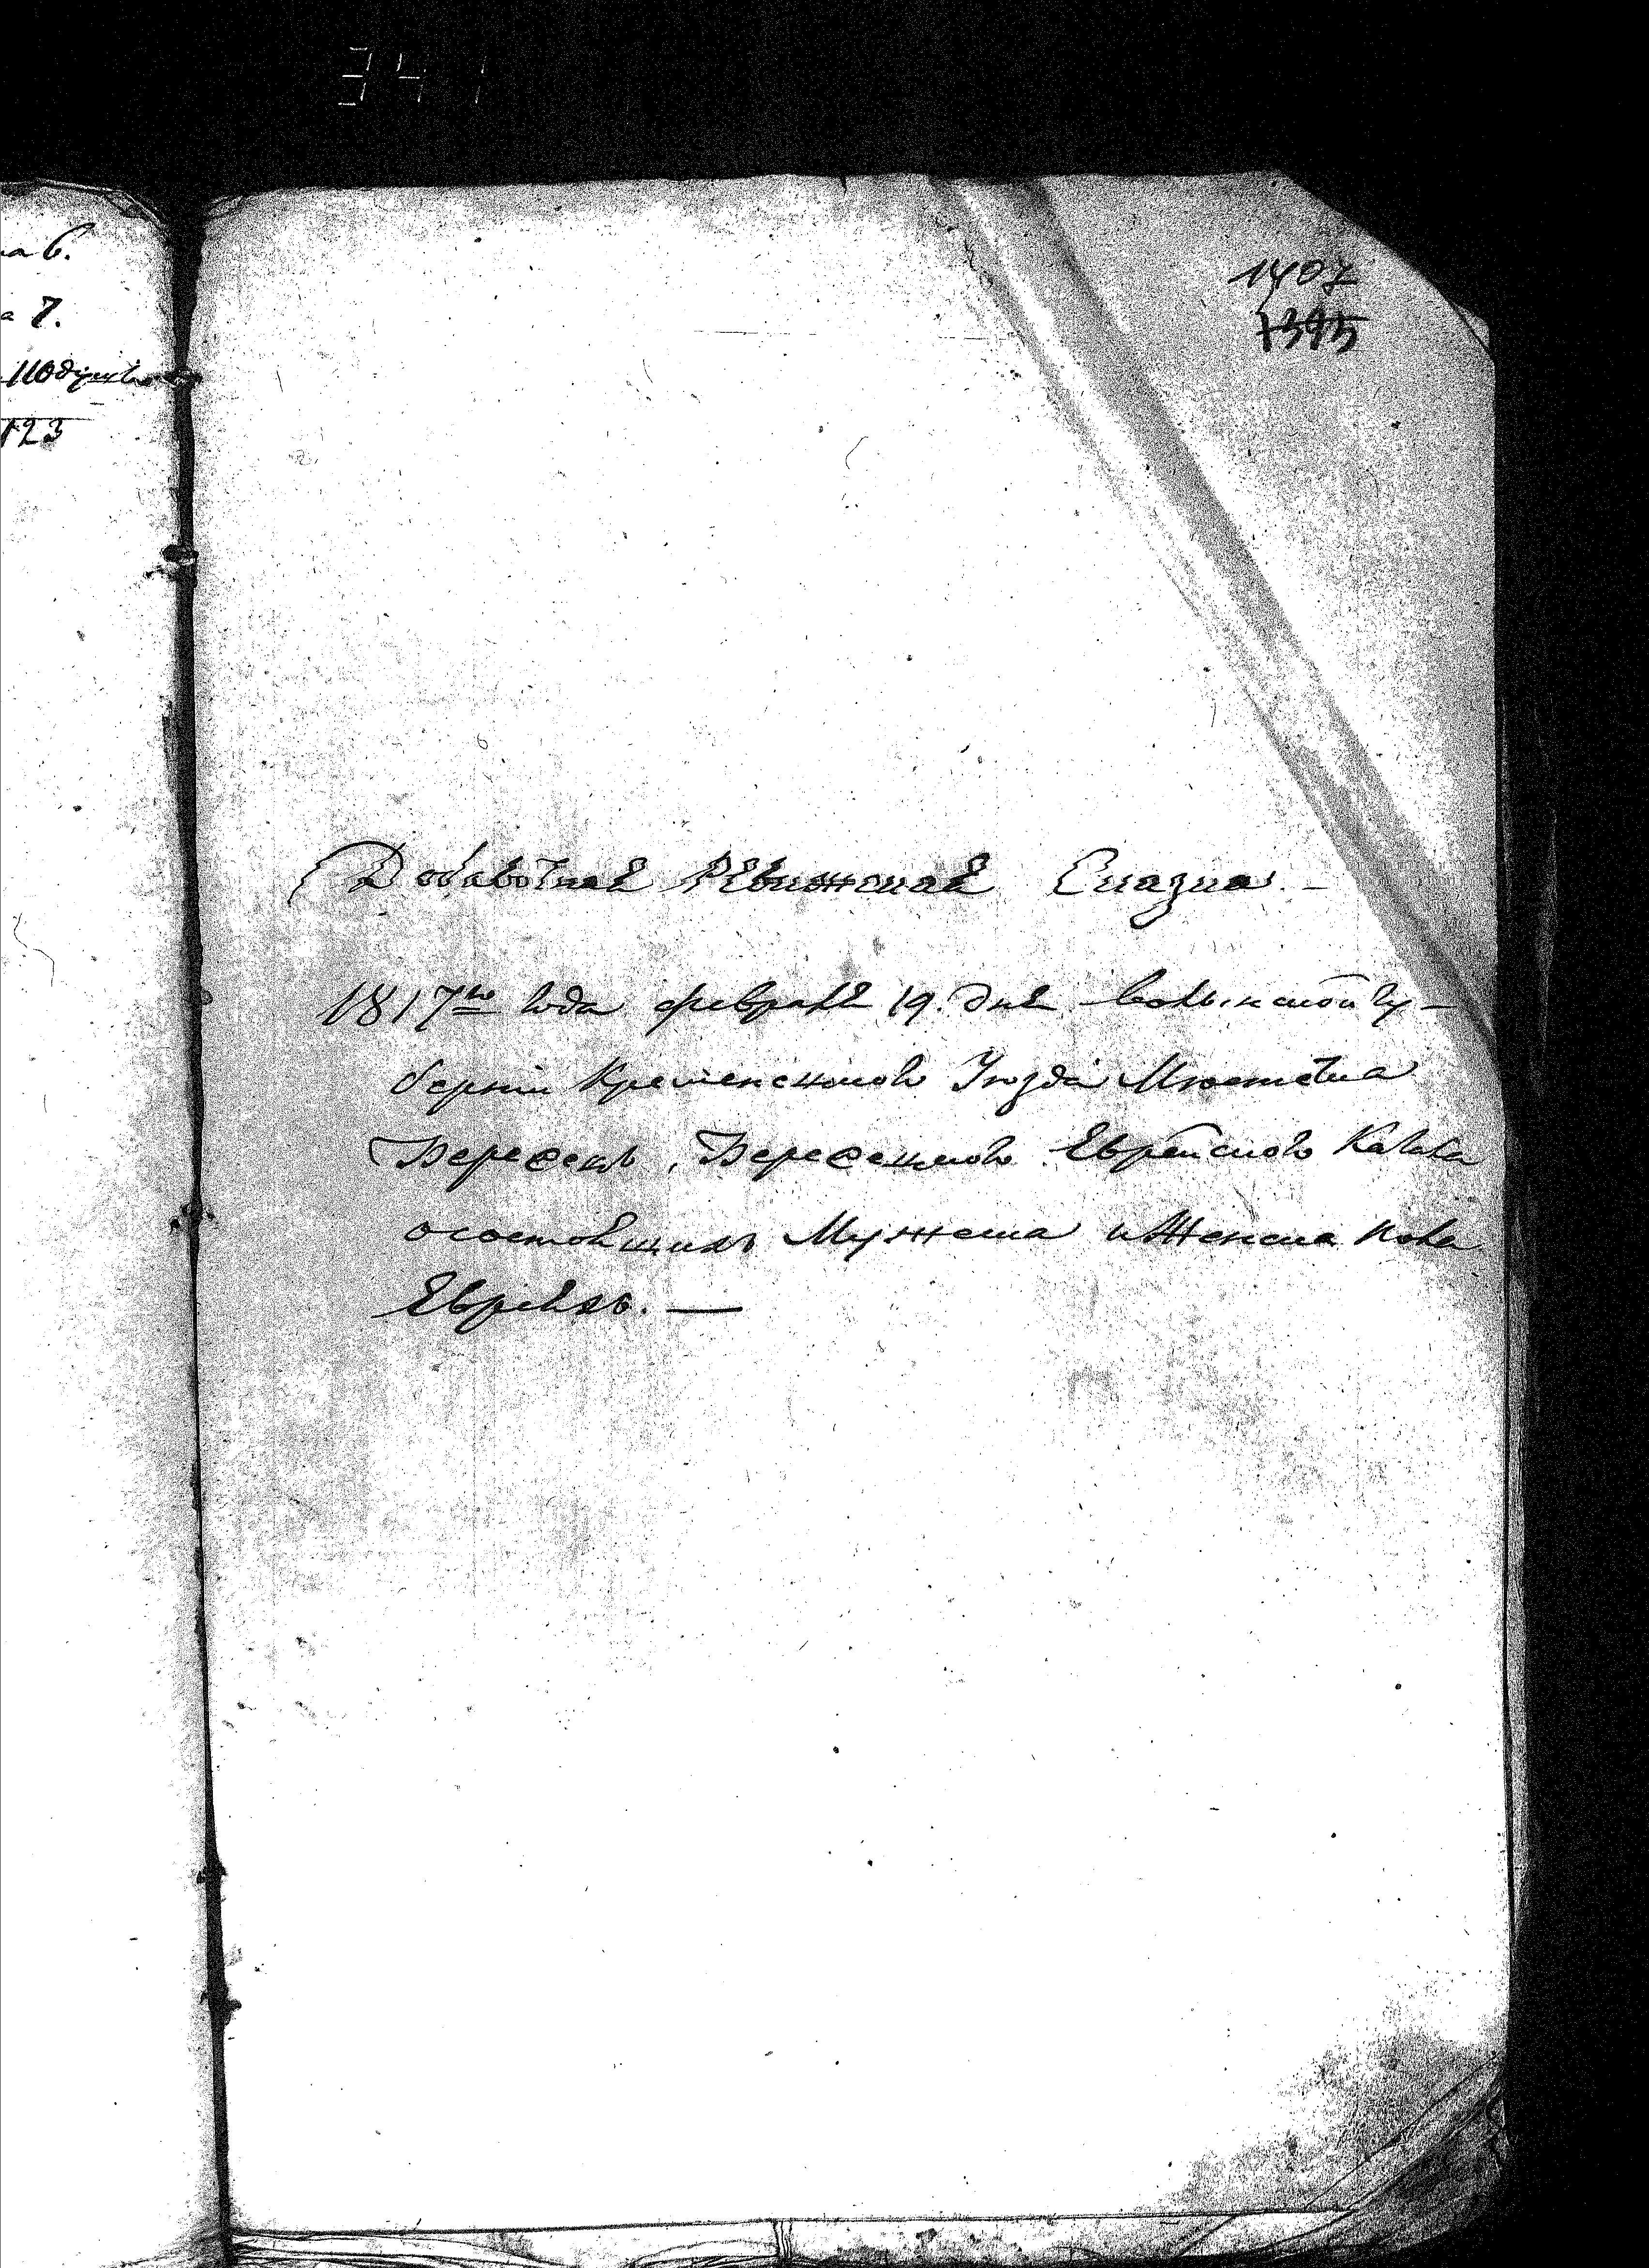 341
1407
1395
на 6.
а 7.
110 душъ
123
Добавочная Ревижская Сказка. -
1817го года февраля 19. дня Волынской гу-
берніи Кременецкого Уезда Местечка
Берездец, Берездецкого Еврейского Кагала
о состоящихъ Мужеска и Женска пола
Евреяхъ. —